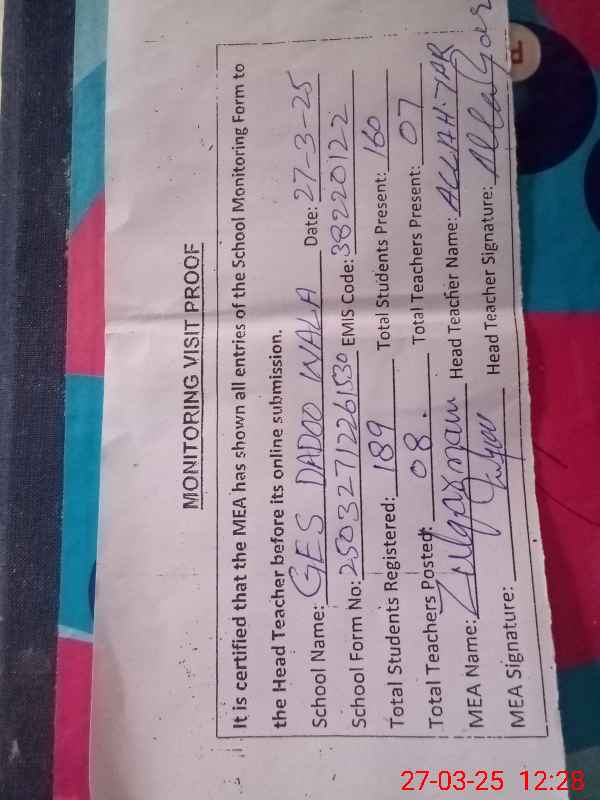 MONITORING VISIT PROOF
It is certified that the MEA has shown all entries of the School Monitoring Form to
the Head Teacher before its online submission.
School Name: GES DADOO WALA Date: 27-3-25
School Form No: 25032712261530 EMIS Code: 38220122
Total Students Registered: 189 Total Students Present: 160
Total Teachers Posted: 08. Total Teachers Present: 07
MEA Name: Zulqarnain Head Teacher Name: ALLAH-YAR
MEA Signature: Head Teacher Signature: Allah Yar
27-03-25 12:28